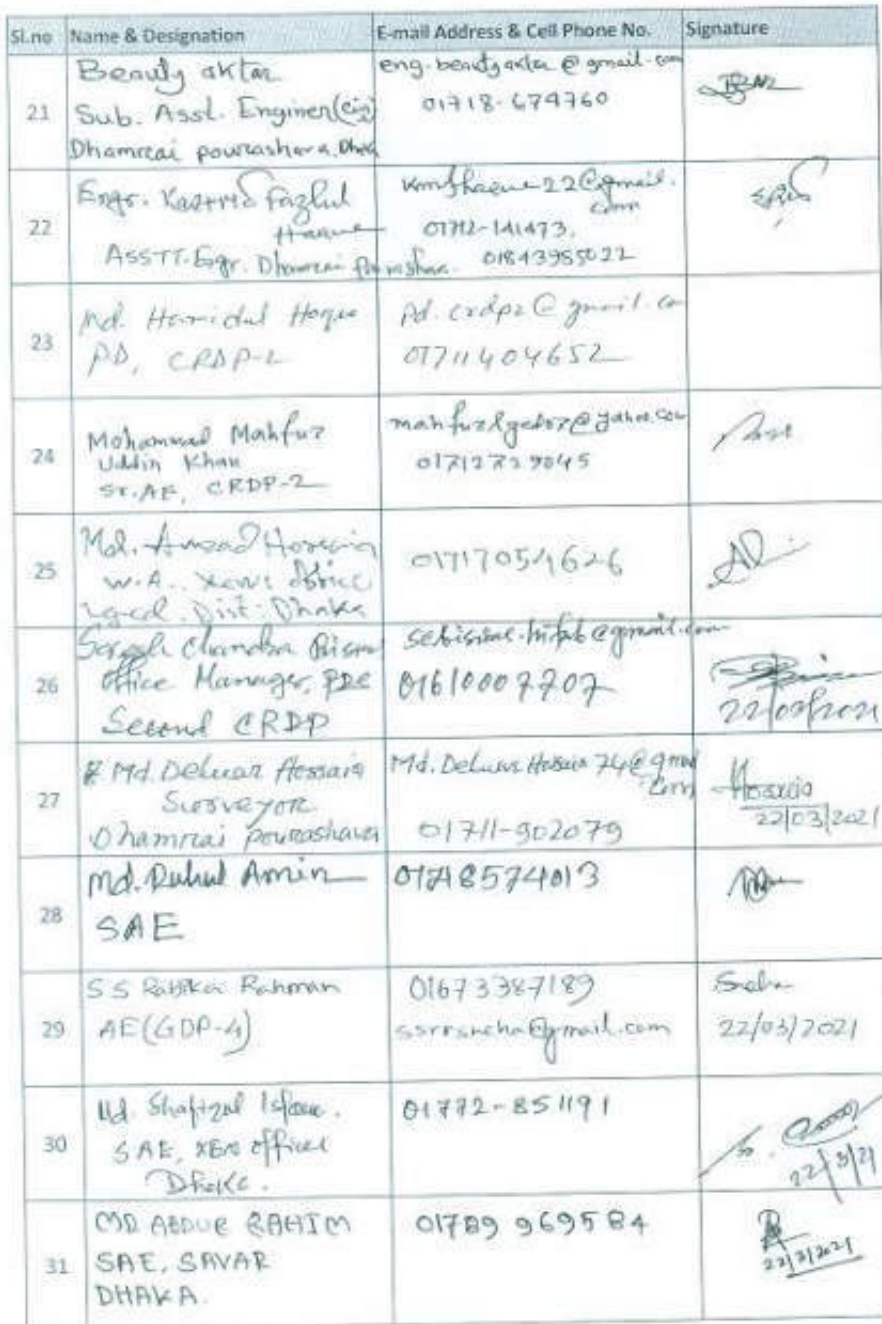 Sl.no Name & Designation E-mail Address & Cell Phone No. Signature
21
Beauty aktar
Sub. Asst. Enginer
Dhamrai pourashava. Dhaka
eng.beautyakter@gmail.com
01718-674760
22
Engr. Fazlul
Haque
ASSTT. Engr. Dhamrai
22@gmail.
com
01712-141473.
01843985022
23
Md. Hamidul Hoque
PD, CRDP-2
Pd.crdp2@gmail.co
01711404652
24
Mohammad Mahfuz
Uddin Khan
Sr.AE, CRDP-2
mahfuzlged07@yahoo.com
01712729045
25
Md. Amzad Hossain
W.A.. office
Lged. Dist: Dhaka
01717054626
26
Chandra
Office Manager,
Second CRDP
@gmail.com
01610007707
22/03/2021
27
Md. Deluar Hossain
Surveyor
Dhamrai pourashava
Md.Deluar Hossain 74@gmail
.com
01711-902079
Hossain
22/03/2021
28
Md. Ruhul Amin
SAE
01718574013
29
S S Rahman
AE(GDP-4)
01673387189
ssrrsneha@gmail.com
Sneha
22/03/2021
30
Md. Shafiqul Islam.
SAE, XEN office
Dhaka.
01772-851191
22/3/21
31
MD ABDUR RAHIM
SAE, SAVAR
DHAKA.
01789 969584
22/3/2021